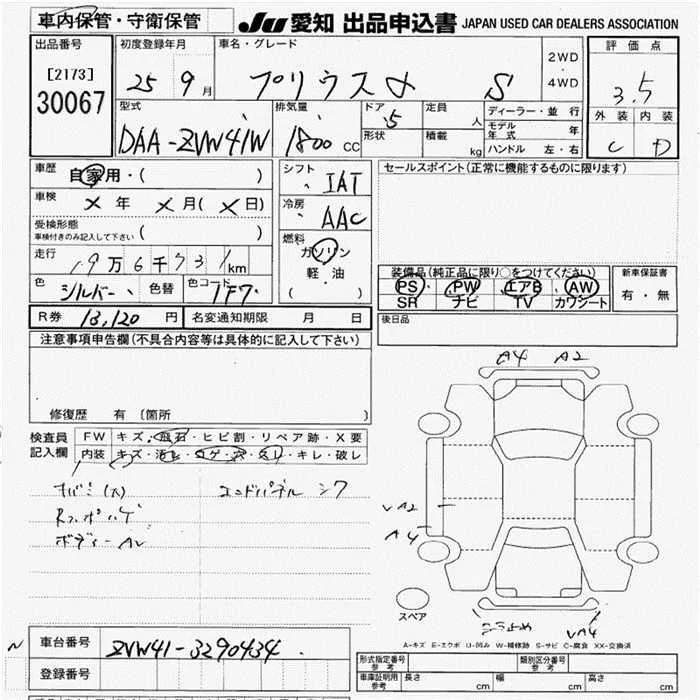 車内保管・守衛保管
JU 愛知 出品申込書 JAPAN USED CAR DEALERS ASSOCIATION
出品番号
[2173]
30067
初度登録年月
25年 9月
車名・グレード
プリウスα S
2WD
・
4WD
評価点
3.5
外装 内装
C D
型式
DAA-ZVW41W
排気量
1800 CC
ドア 5
形状
定員 人
積載 kg
ディーラー・並行
モデル年式 年
ハンドル 左・右
車歴 自家用・( )
車検 × 年 × 月 ( × 日)
受検形態
車検付きのみ記入して下さい ( )
走行 19万6千731km
色 シルバー 色替 色コード 1F7
シフト IAT
冷房 AAC
燃料
ガソリン
軽・油
( )
セールスポイント(正常に機能するものに限ります)
装備品(純正品に限り○をつけてください)
PS PW エアB AW
SR ナビ TV カワシート
新車保証書
有・無
R券 13,120 円 名変通知期限 月 日
後日品
注意事項申告欄(不具合内容等は具体的に記入して下さい)
修復歴 有 〔箇所 〕
検査員
記入欄
FW キズ・飛石・ヒビ割・リペア跡・X要
内装 キズ・汚レ・コゲ・穴・スレ・キレ・破レ
エンドパネル シワ
ボディー
A4 A2
VA2
A4
VA4
スペア
A-キズ E-エクボ U-凹み W-補修跡 S-サビ C-腐食 XX-交換済
車台番号 ZVW41-3290434
登録番号
形式指定番号
参考
類別区分番号
参考
車庫証明用
参考
長さ cm 幅 cm 高さ cm